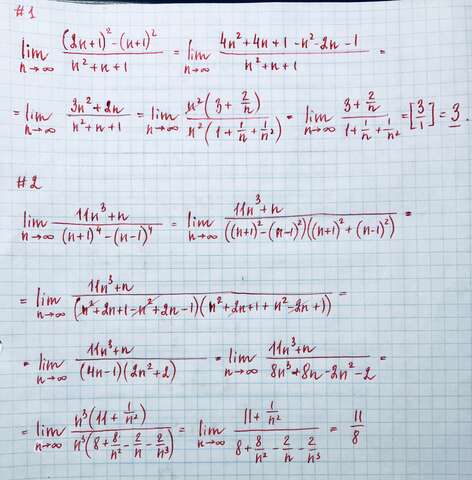 #1
lim n→∞ ((2n+1)² - (n+1)²)/(n²+n+1) = lim n→∞ (4n²+4n+1-n²-2n-1)/(n²+n+1) =
= lim n→∞ (3n²+2n)/(n²+n+1) = lim n→∞ (n²(3+2/n))/(n²(1+1/n+1/n²)) = lim n→∞ (3+2/n)/(1+1/n+1/n²) = [3/1] = 3.
#2
lim n→∞ (11n³+n)/((n+1)⁴-(n-1)⁴) = lim n→∞ (11n³+n)/(((n+1)²-(n-1)²)((n+1)²+(n-1)²)) =
= lim n→∞ (11n³+n)/((n²+2n+1-n²+2n-1)(n²+2n+1+n²-2n+1)) =
= lim n→∞ (11n³+n)/((4n-1)(2n²+2)) = lim n→∞ (11n³+n)/(8n³+8n-2n²-2) =
= lim n→∞ (n³(11+1/n²))/(n³(8+8/n²-2/n-2/n³)) = lim n→∞ (11+1/n²)/(8+8/n²-2/n-2/n³) = 11/8